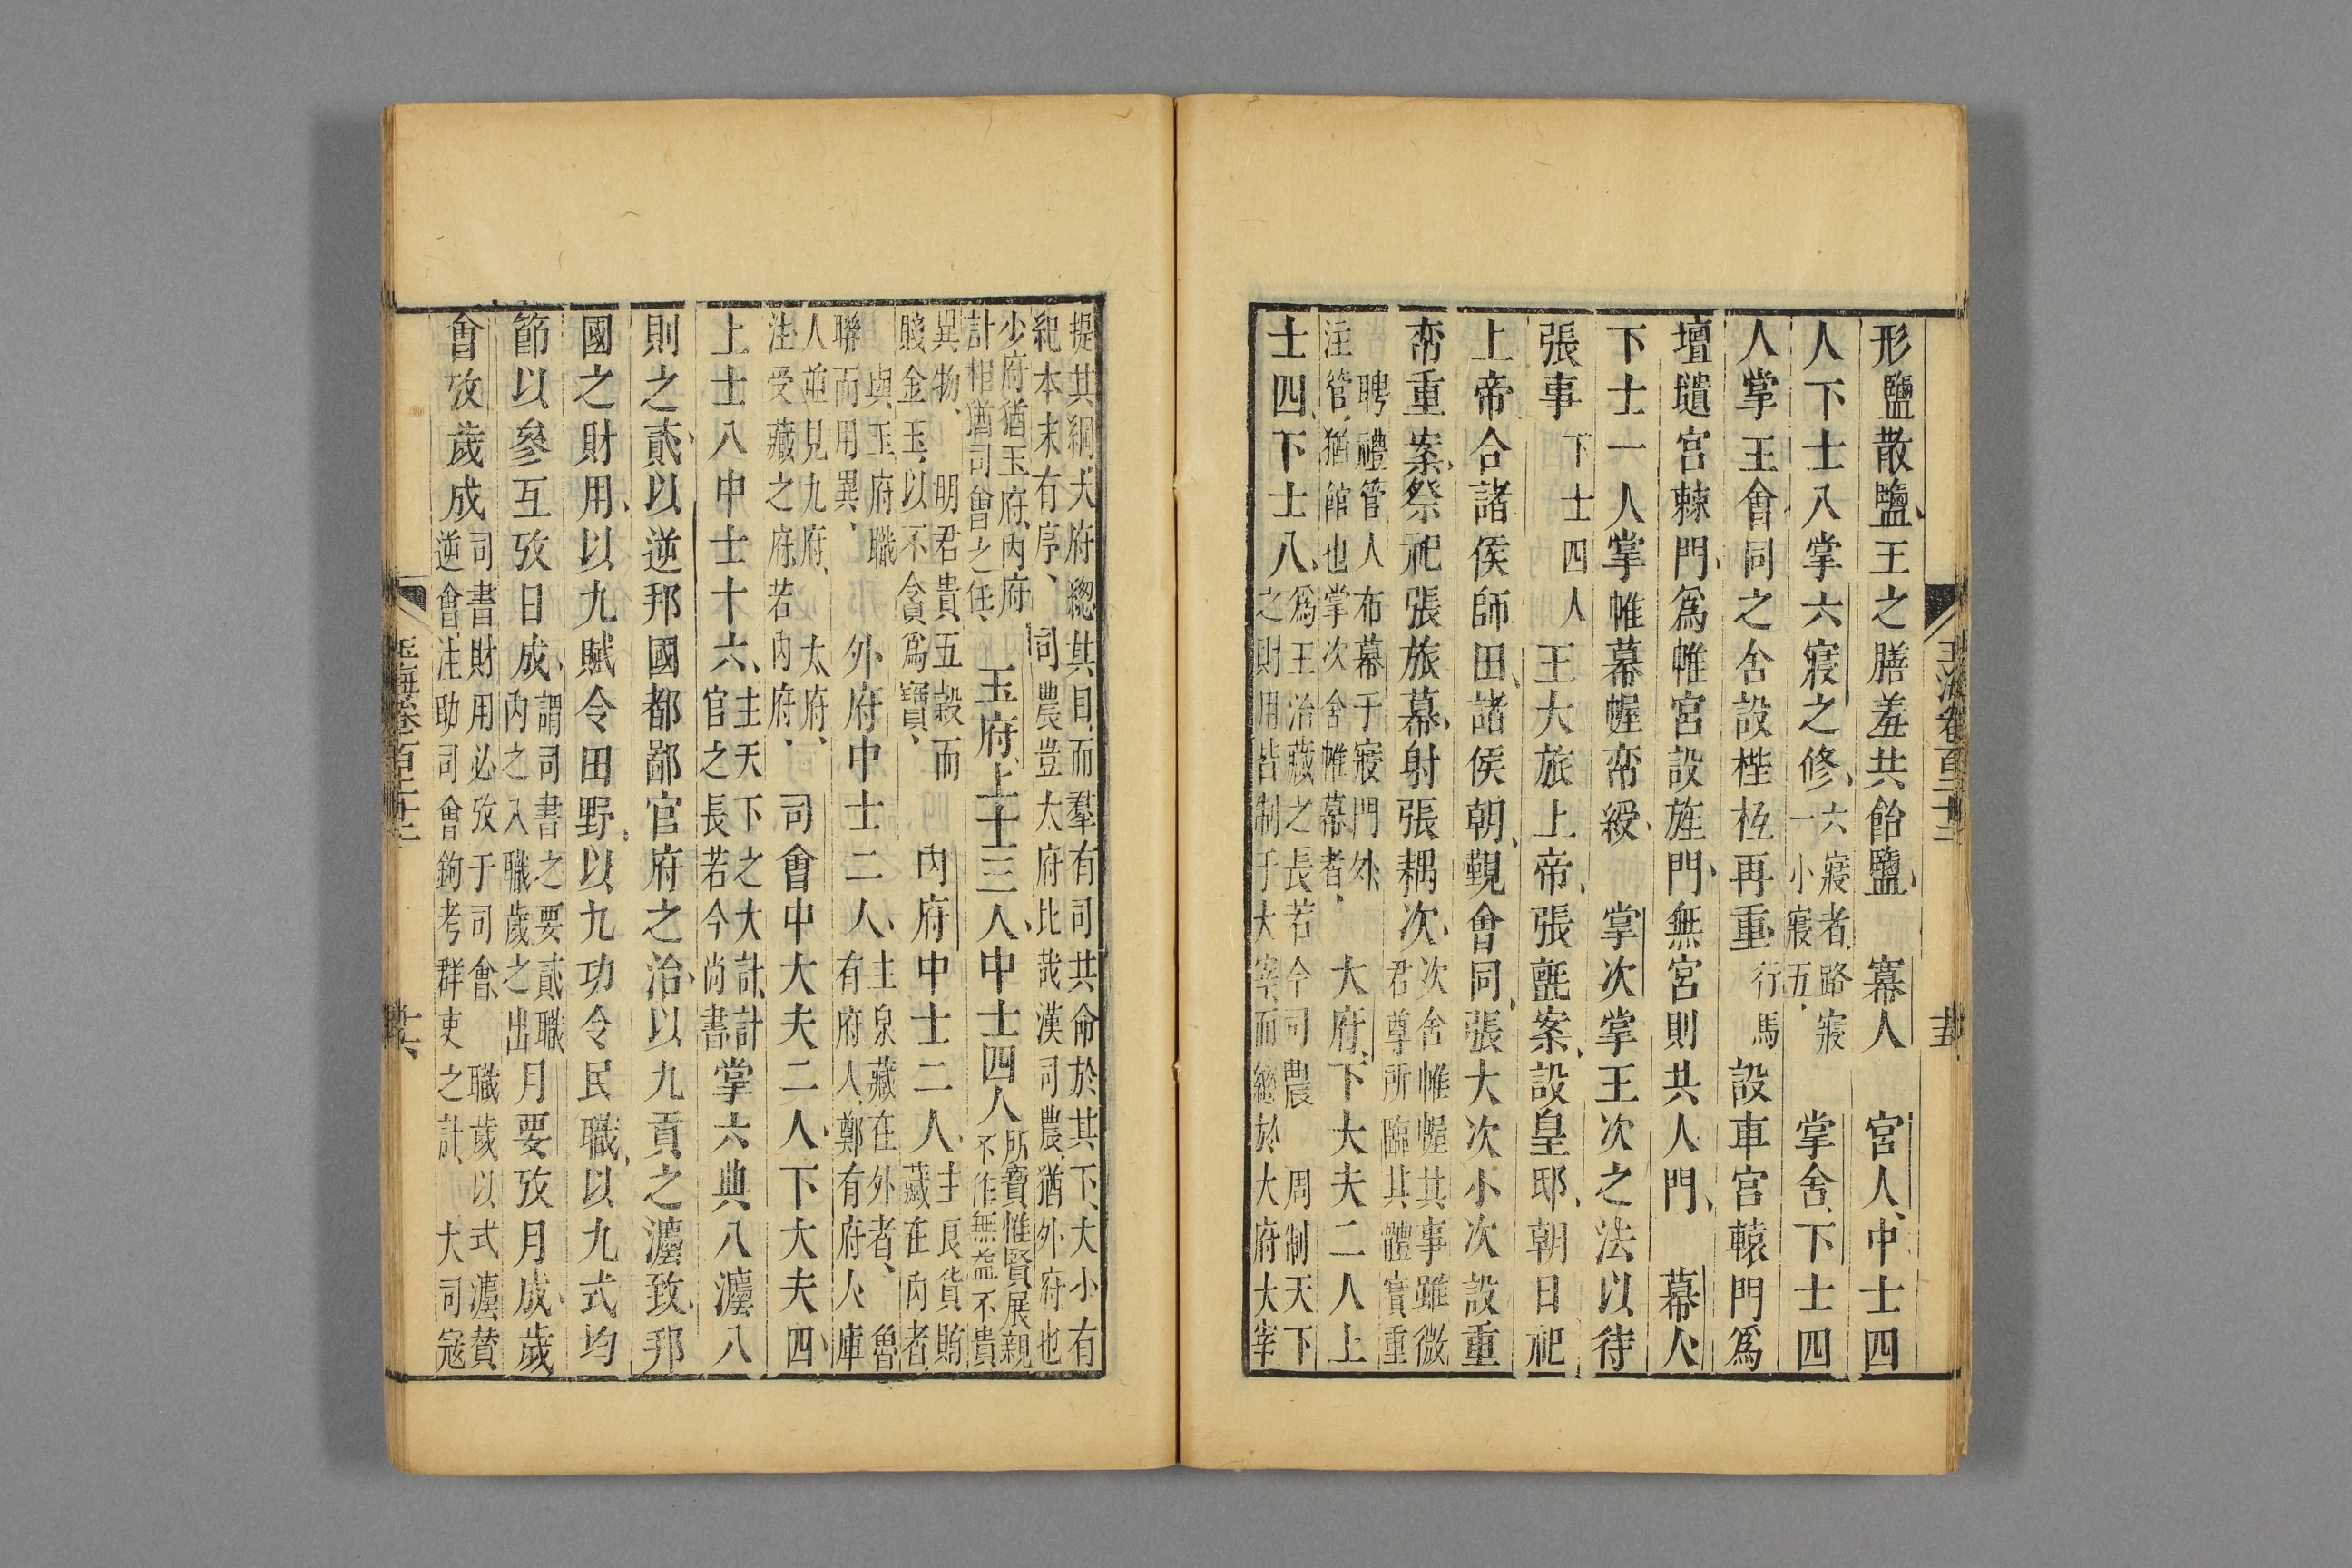 玉海卷百二十三　十五
形鹽散鹽王之膳羞共飴鹽　冪人　宮人中士四
人下士八掌六寢之修六寢者路寢一小寢五　掌舍下士四
人掌王會同之舍設梐枑再重行馬設車宮轅門爲
壇壝宮棘門爲帷宮設旌門無宮則共人門　幕人
下士一人掌帷幕幄帟綬　掌次掌王次之法以待
張事下士四人王大旅上帝張氈案設皇邸朝日祀
上帝合諸侯師田諸侯朝覲會同張大次小次設重
帟重案祭祀張旅幕射張耦次次舍帷幄其事雖微君尊所臨其體實重
聘禮管人布幕于寢門外注管猶館也掌次舍帷幕者　大府下大夫二人上
士四下士八爲王治藏之長若今司農　周制天下之財用皆制于大宰而總於大府大宰
提其綱大府總其目而羣有司共命於其下大小有
紀本末有序　司農豈大府比哉漢司農猶外府也
少府猶玉府內府計相猶司會之任　玉府上士三人中士四人所寶惟賢展親不作無益不貴
異物　明君貴五穀而賤金玉以不貪爲寶　內府中士二人主良貨賄藏在內者
與玉府職聯而用異　外府中士二人主泉藏在外者　魯有府人鄭有府人庫
人並見九府　太府注受藏之府若內府　司會中大夫二人下大夫四
上士八中士十六主天下之大計計官之長若今尚書掌六典八灋八
則之貳以逆邦國都鄙官府之治以九貢之灋致邦
國之財用以九賦令田野以九功令民職以九式均
節以參互攷日成謂司書之要貳職內之入職歲之出月要攷月成歲
會攷歲成司書財用必攷于司會　職歲以式灋贊逆會注助司會鉤考群吏之計　大司寇
玉海卷百二十三　十六